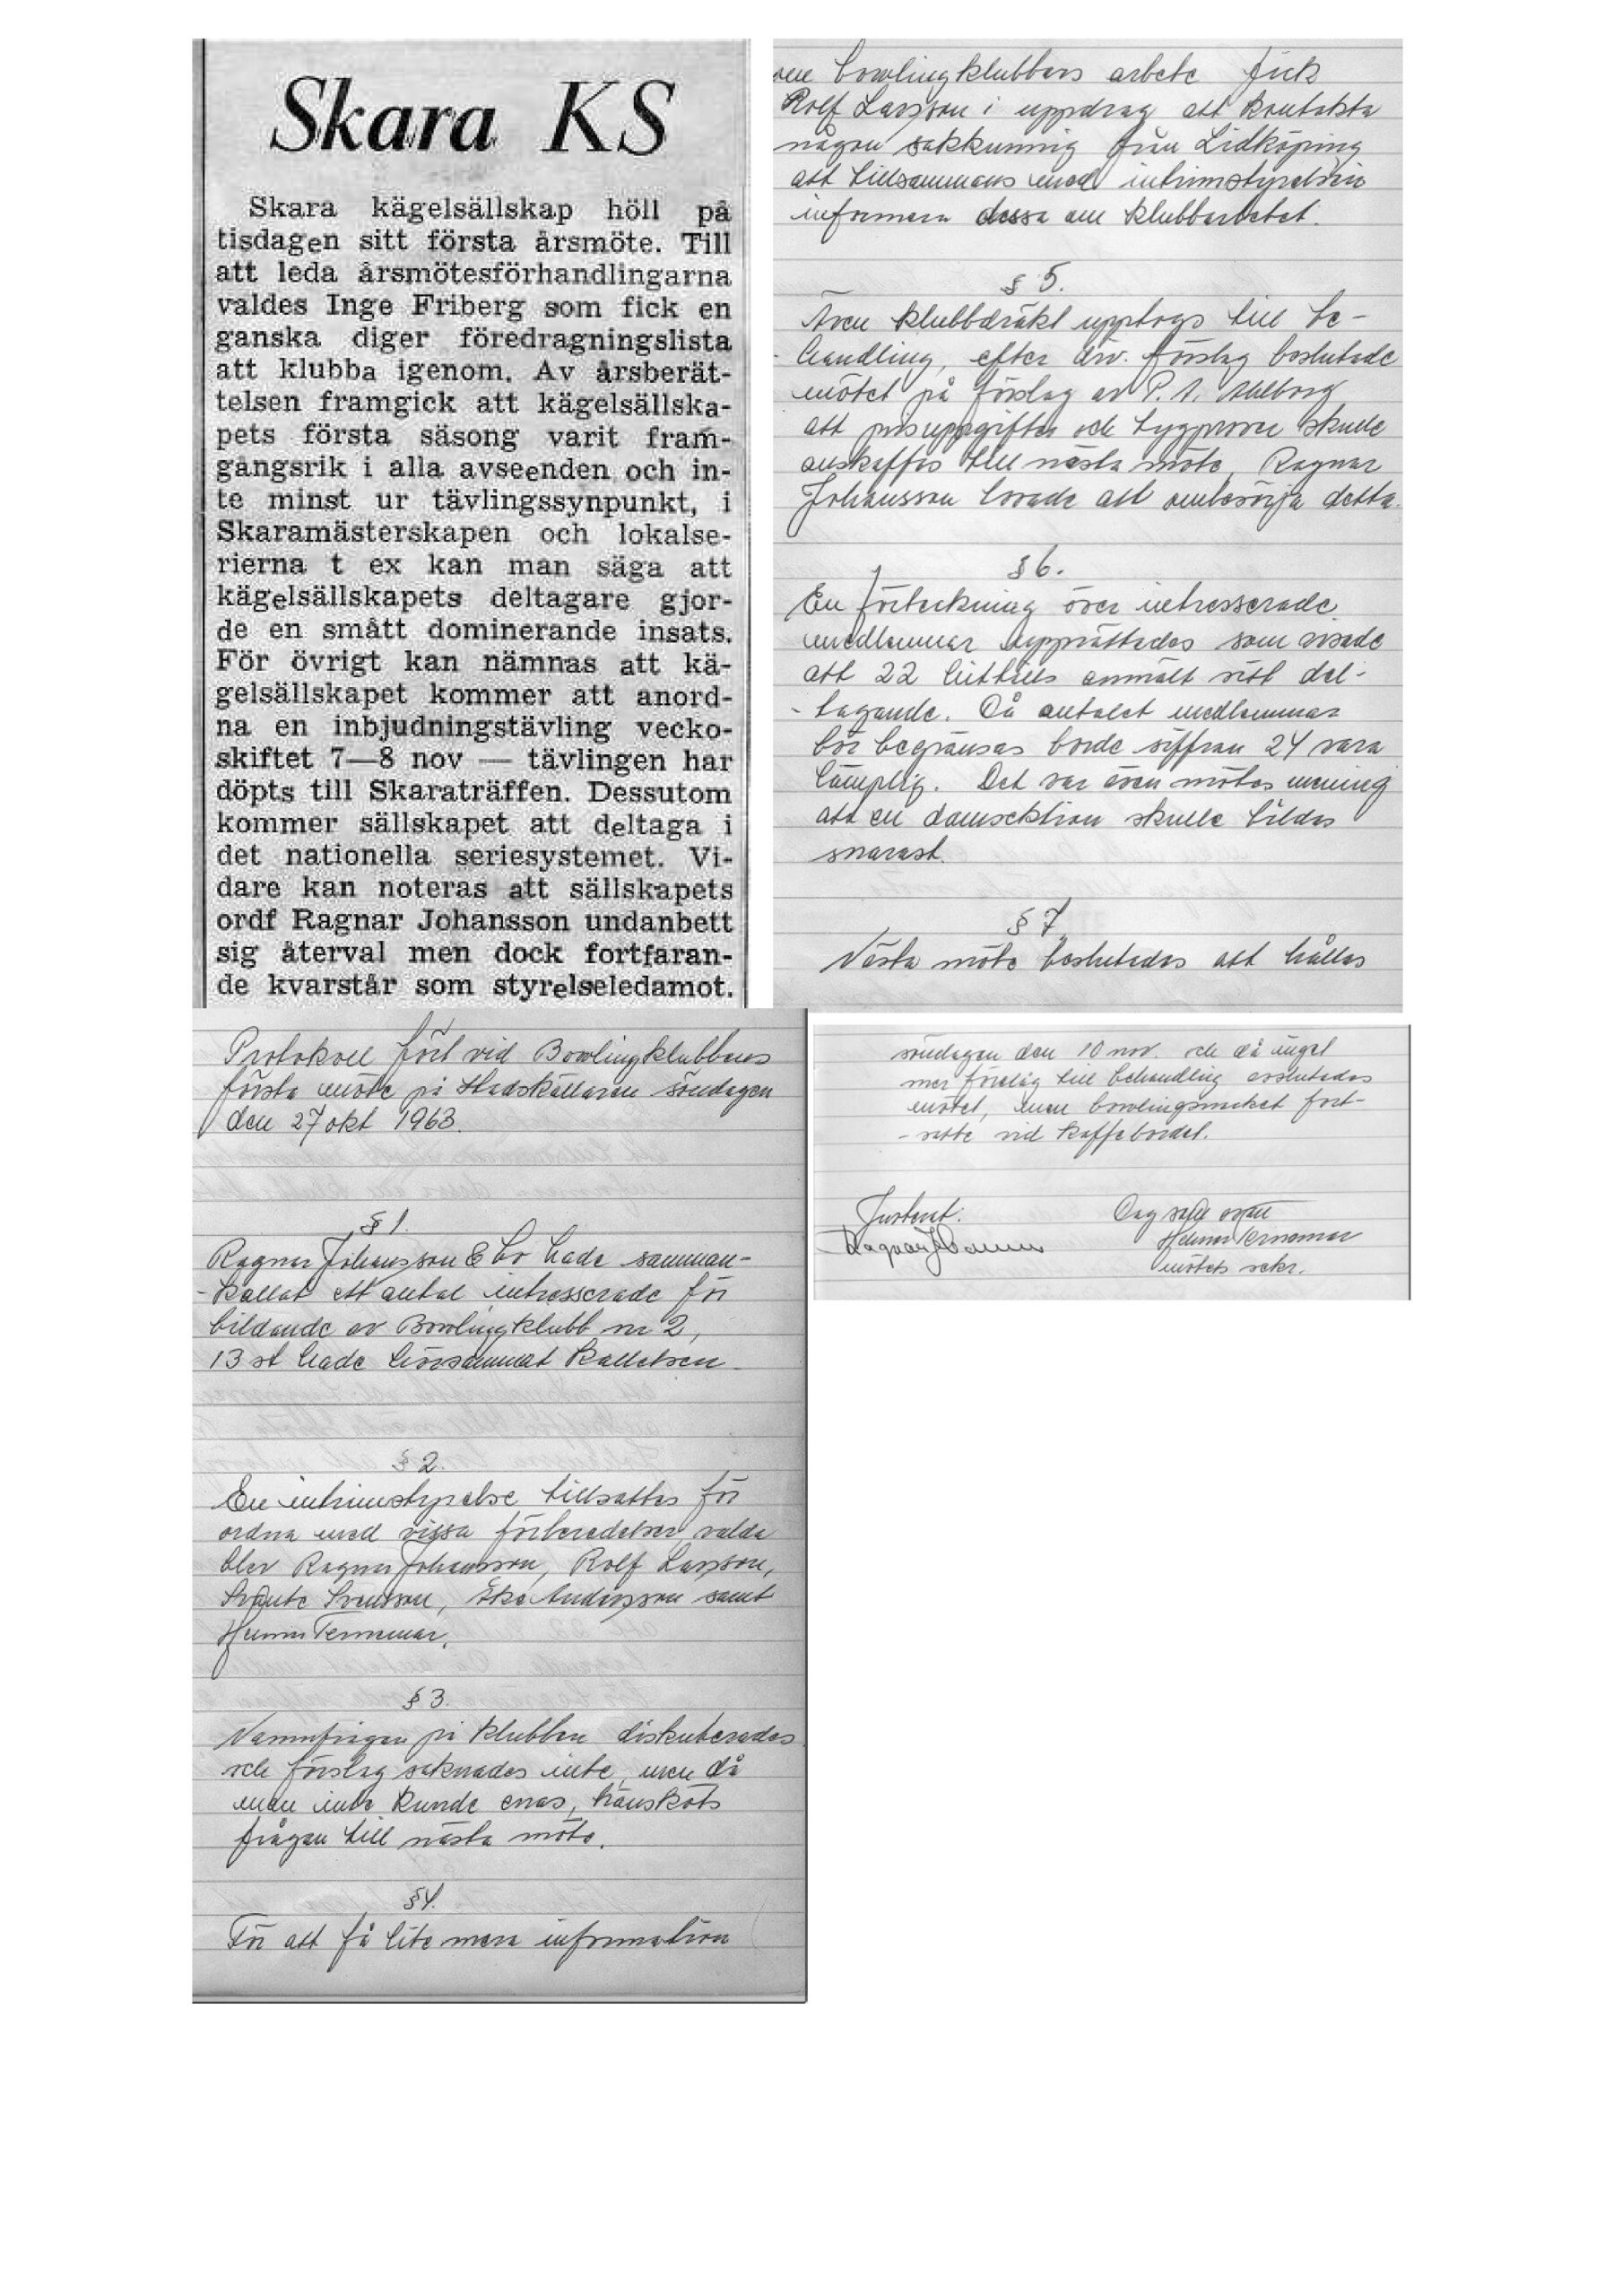 Skara KS
Skara kägelsällskap höll på
tisdagen sitt första årsmöte. Till
att leda årsmötesförhandlingarna
valdes Inge Friberg som fick en
ganska diger föredragningslista
att klubba igenom. Av årsberät-
telsen framgick att kägelsällska-
pets första säsong varit fram-
gångsrik i alla avseenden och in-
te minst ur tävlingssynpunkt, i
Skaramästerskapen och lokalse-
rierna t ex kan man säga att
kägelsällskapets deltagare gjor-
de en smått dominerande insats.
För övrigt kan nämnas att kä-
gelsällskapet kommer att anord-
na en inbjudningstävling vecko-
skiftet 7—8 nov — tävlingen har
döpts till Skaraträffen. Dessutom
kommer sällskapet att deltaga i
det nationella seriesystemet. Vi-
dare kan noteras att sällskapets
ordf Ragnar Johansson undanbett
sig återval men dock fortfaran-
de kvarstår som styrelseledamot.
Protokoll fört vid Bowlingklubbens
första möte på Stadskällaren söndagen
den 27 okt 1963.
§ 1.
Ragnar Johansson E bo hade samman-
-kallat ett antal intresserade för
bildande av Bowlingklubb nr 2,
13 st hade hörsammat kallelsen.
§ 2.
En intrimstyrelse tillsattes för
ordna med vissa förberedelser, valda
blev Ragnar Johansson, Rolf Larsson,
Svante Svensson, Åke Andersson samt
Helmer Ternemar.
§ 3.
Namnfrågan på klubben diskuterades
och förslag saknades inte, men då
man inte kunde enas, hänsköts
frågan till nästa möte.
§4.
För att få lite mera information
om bowlingklubbens arbete fick
Rolf Larsson i uppdrag att kontakta
någon sakkunnig från Lidköping
att tillsammans med intrimstyrelsen
informera dessa om klubbarbetet.
§ 5.
Även klubbdräkt upptogs till be-
-handling, efter div. förslag beslutade
mötet på förslag av P. A. Ahlborg
att prisuppgifter och tygprover skulle
anskaffas till nästa möte, Ragnar
Johansson lovade att ombesörja detta.
§ 6.
En förteckning över intresserade
medlemmar upprättades som visade
att 22 hittills anmält sitt del-
-tagande. Då antalet medlemmar
bör begränsas borde siffran 24 vara
lämplig. Det var även mötes mening
att en damsektion skulle bildas
snarast.
§ 7
Nästa möte beslutades att hållas
söndagen den 10 nov. och då inget
mer förelåg till behandling avslutades
mötet, men bowlingsnacket fort-
-satte vid kaffebordet.
Justerat:
Ragnar Johansson
Dag som ovan
Helmer Ternemar
mötets sekr.